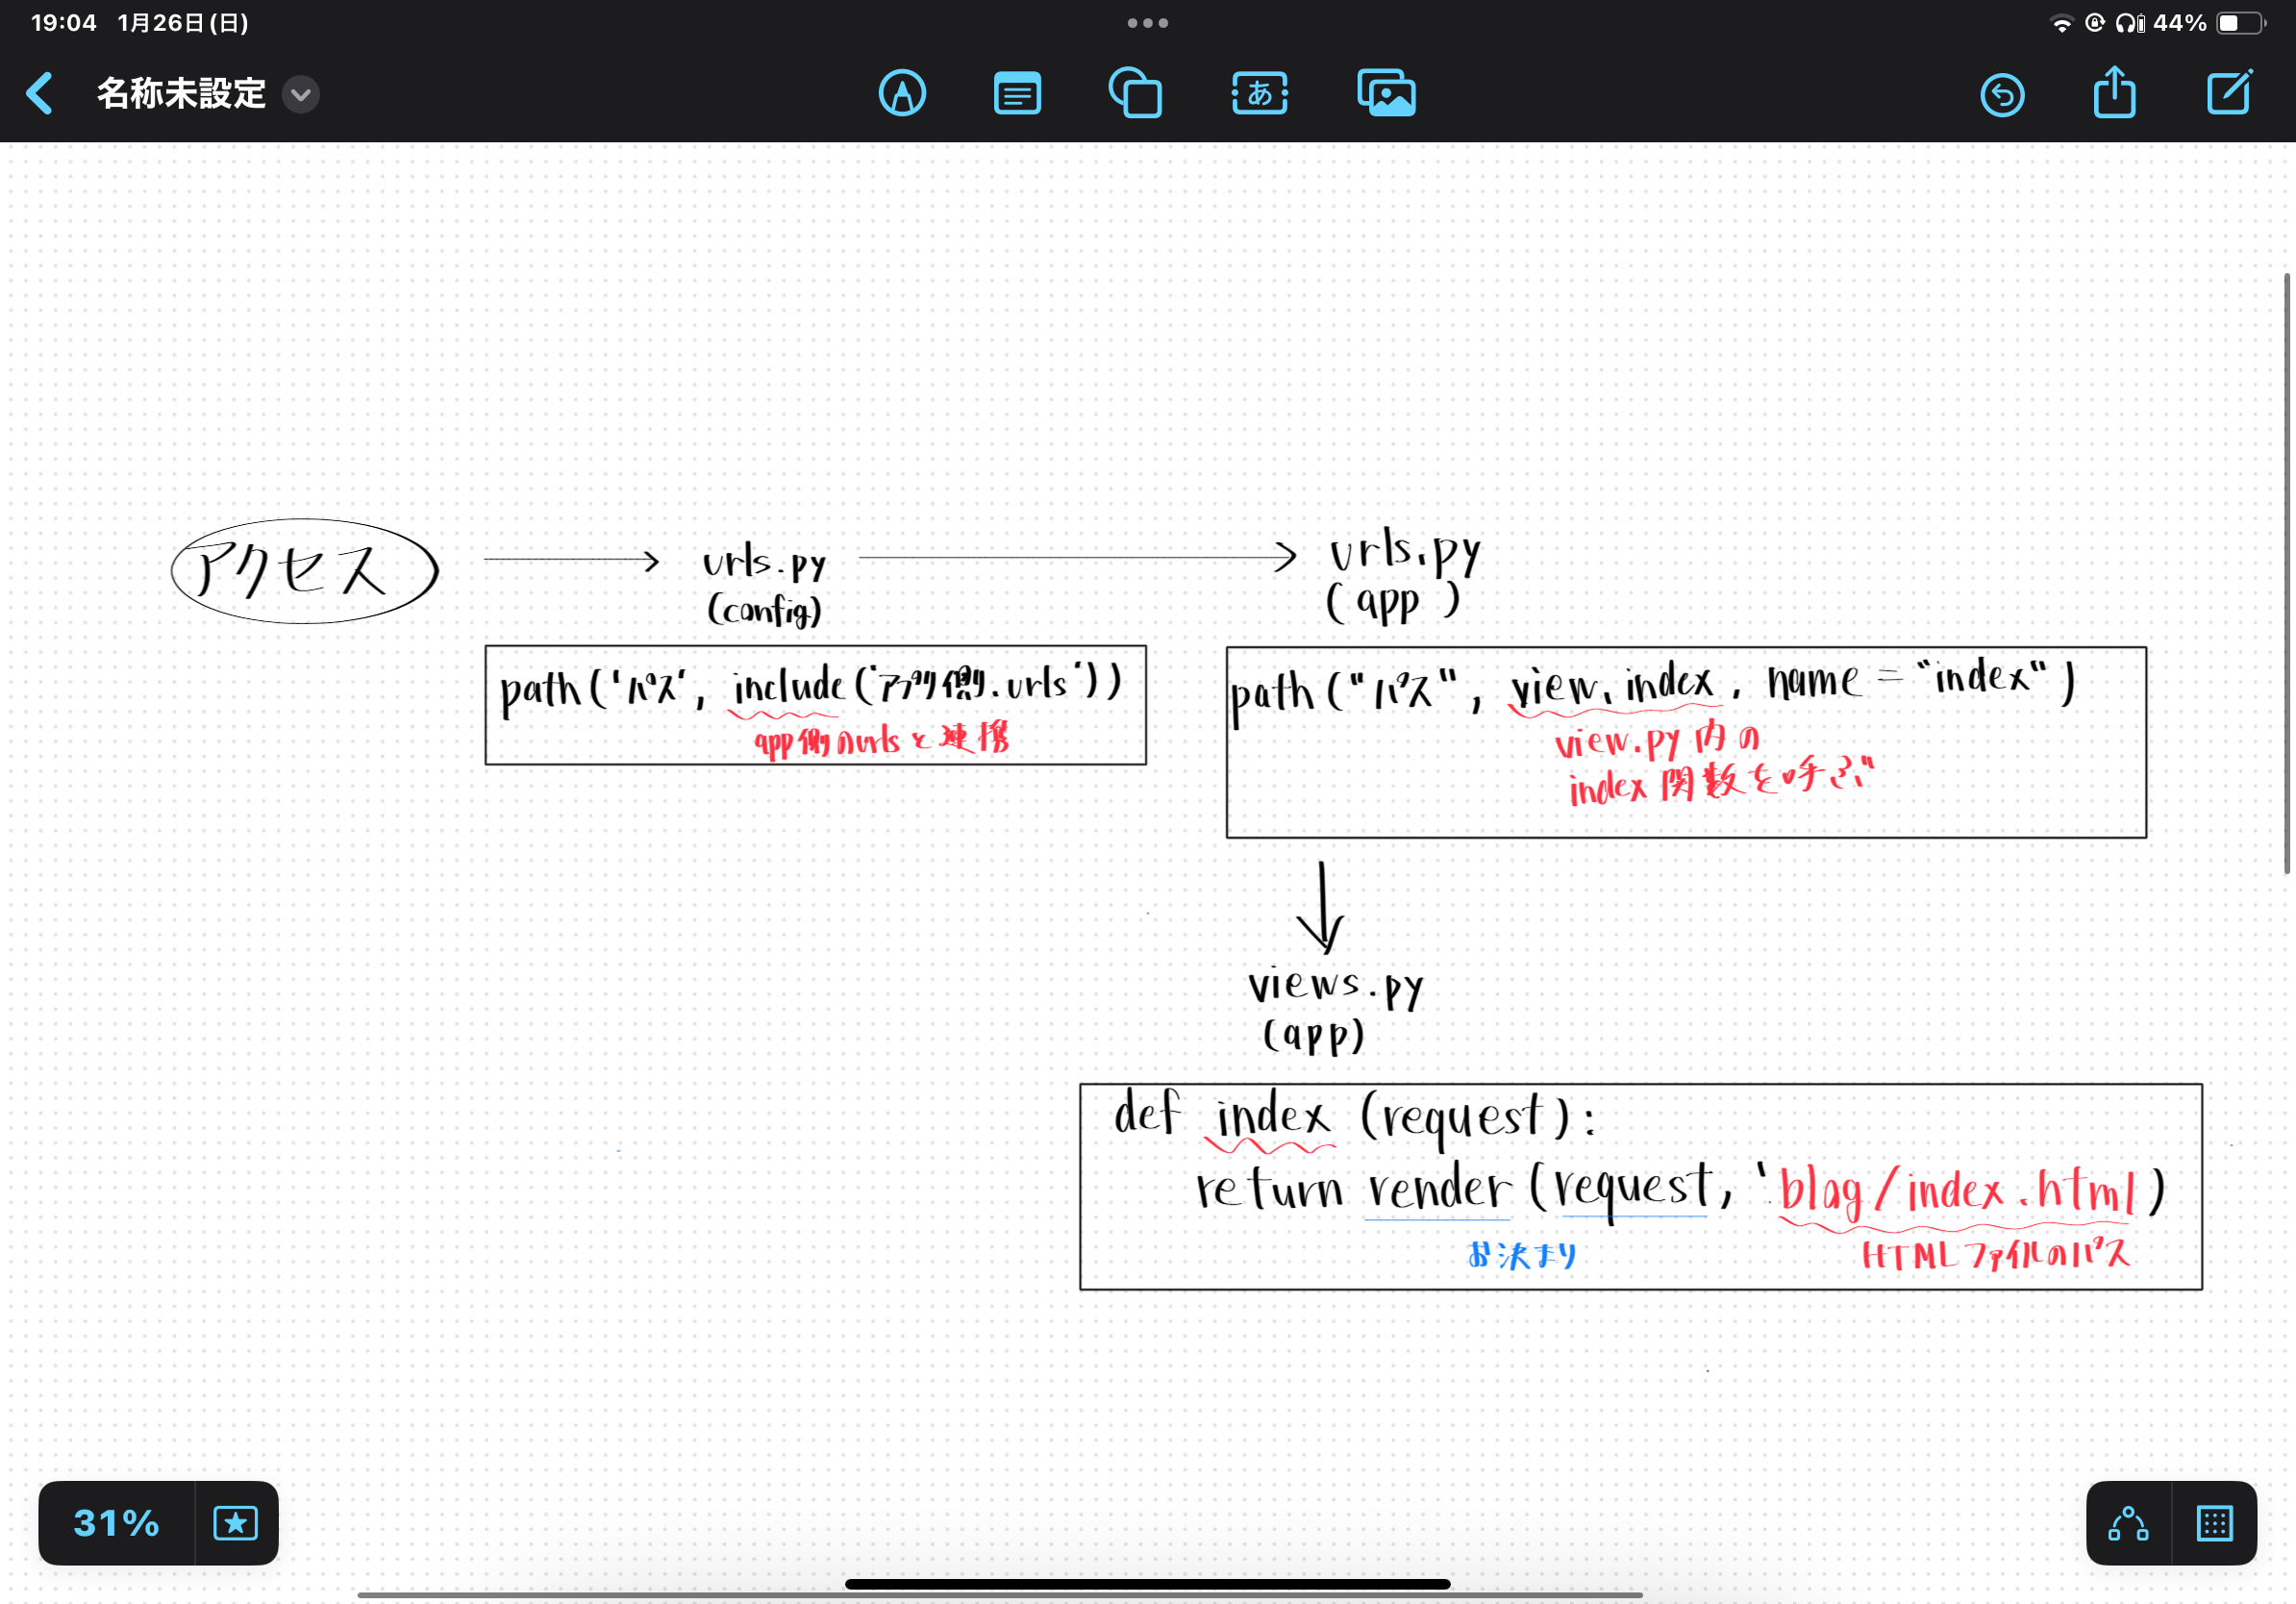 19:04 1月26日(日)
44%
名称未設定
あ
アクセス
urls.py
(config)
urls.py
(app)
path('パス', include('アプリ側.urls'))
app側のurlsと連携
path("パス", view.index, name="index")
view.py内の
index関数を呼ぶ"
views.py
(app)
def index (request):
return render (request, 'blog/index.html)
お決まり
HTMLファイルのパス
31%